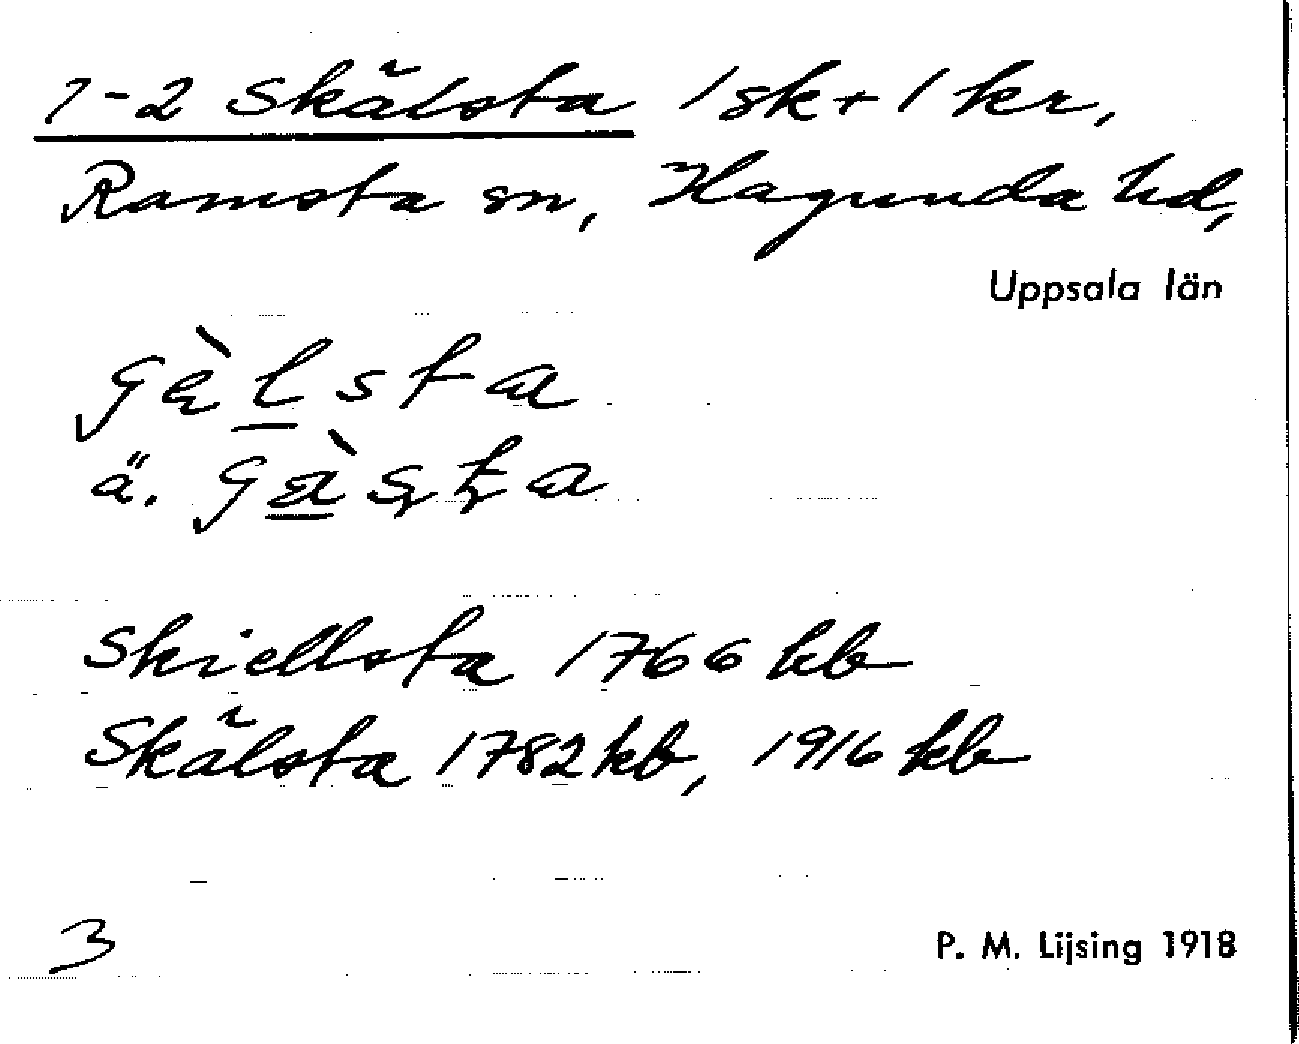 1-2 Skälsta 1 sk + 1 kr,
Ramsta sn, Hagunda hd,
Uppsala län
ä.
Skiellsta 1766 kb
Skälsta 1782 kb, 1916 kb
3
P. M. Lijsing 1918